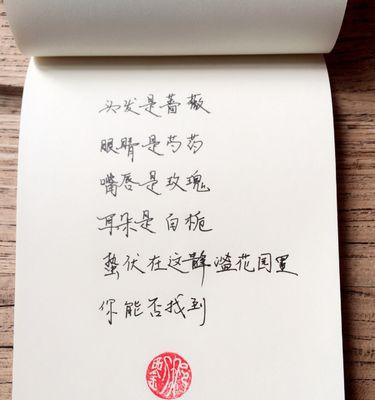 头发是蔷薇
眼睛是芍药
嘴唇是玫瑰
耳朵是白栀
蛰伏在这 花园里
你能否找到